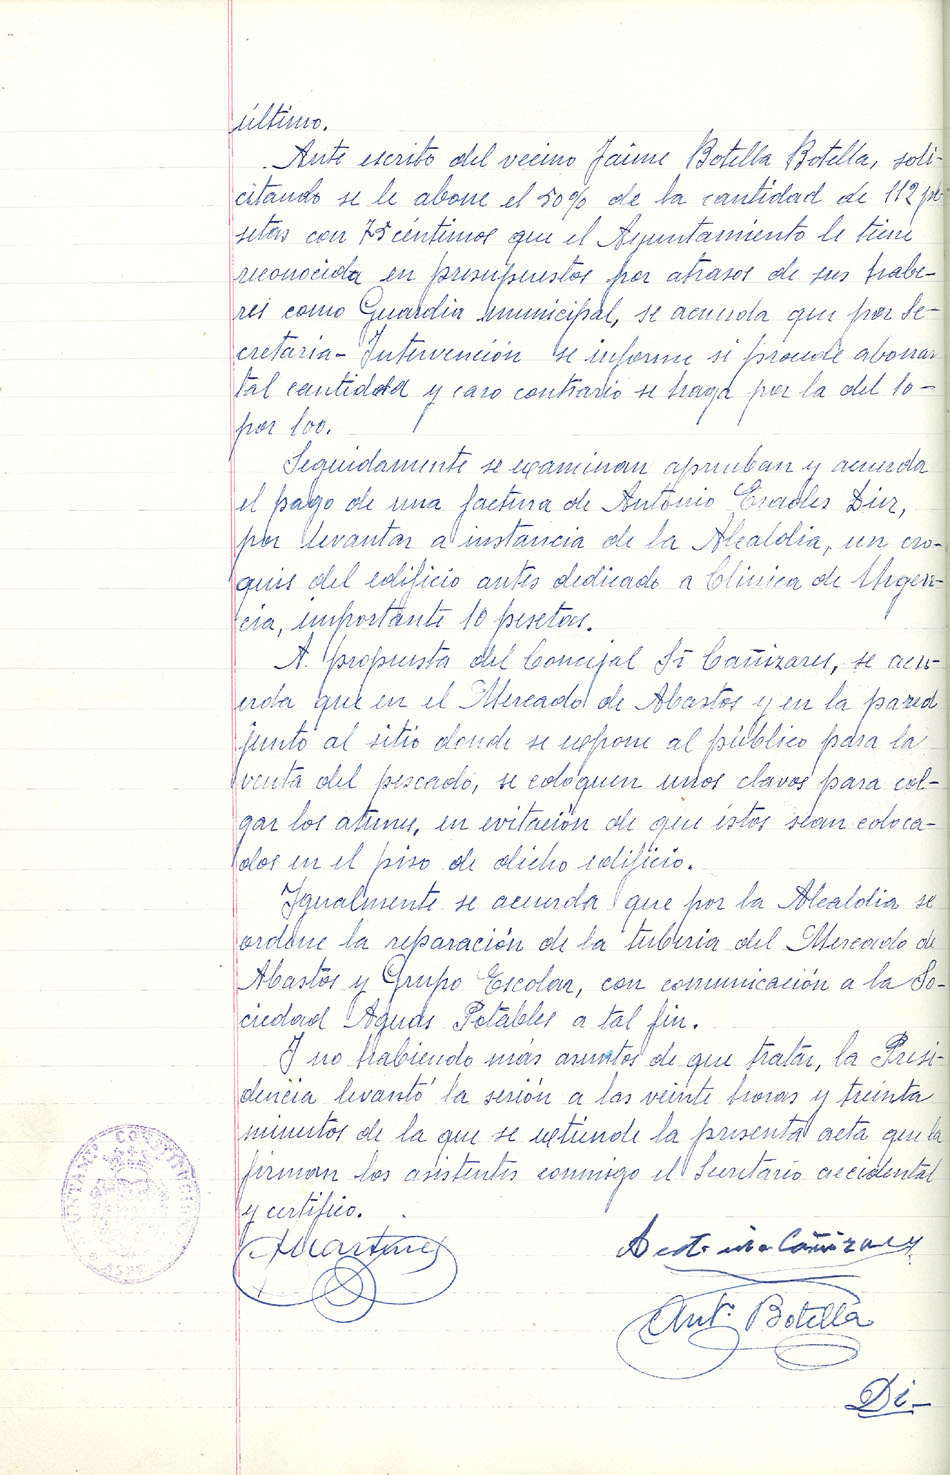 último.
Ante escrito del vecino Jaime Botella Botella, soli-
citando se le abone el 50% de la cantidad de 112 pe-
setas con 75 céntimos que el Ayuntamiento le tiene
reconocida en presupuestos por atrasos de sus habe-
res como Guardia municipal, se acuerda que por Se-
cretaría-Intervención se informe si procede abonar
tal cantidad y caso contrario se haga por la del 10-
por 100.
Seguidamente se examinan aprueban y acuerda
el pago de una factura de Antonio Erades Diez,
por levantar a instancia de la Alcaldia, un cro-
quis del edificio antes dedicado a Clínica de Urgen-
cia, importante 10 pesetas.
A propuesta del Concejal Sr Cañizares, se acu-
erda que en el Mercado de Abastos y en la pared
junto al sitio donde se expone al público para la
venta del pescado, se coloquen unos clavos para col-
gar los atunes, en evitación de que éstos sean coloca-
dos en el piso de dicho edificio.
Igualmente se acuerda que por la Alcaldia se
ordene la reparación de la tuberia del Mercado de
Abastos y Grupo Escolar, con comunicación a la So-
ciedad Aguas Potables a tal fin.
Y no habiendo más asuntos de que tratar, la Presi-
dencia levantó la sesión a las veinte horas y treinta
minutos de la que se extiende la presenta acta que la
firman los asistentes conmigo el Secretario accidental
y certifico.
AYUNTAM.º CONSTITUCIONAL
ASPE
Martinez
Cañizares
Antº. Botella
Di-